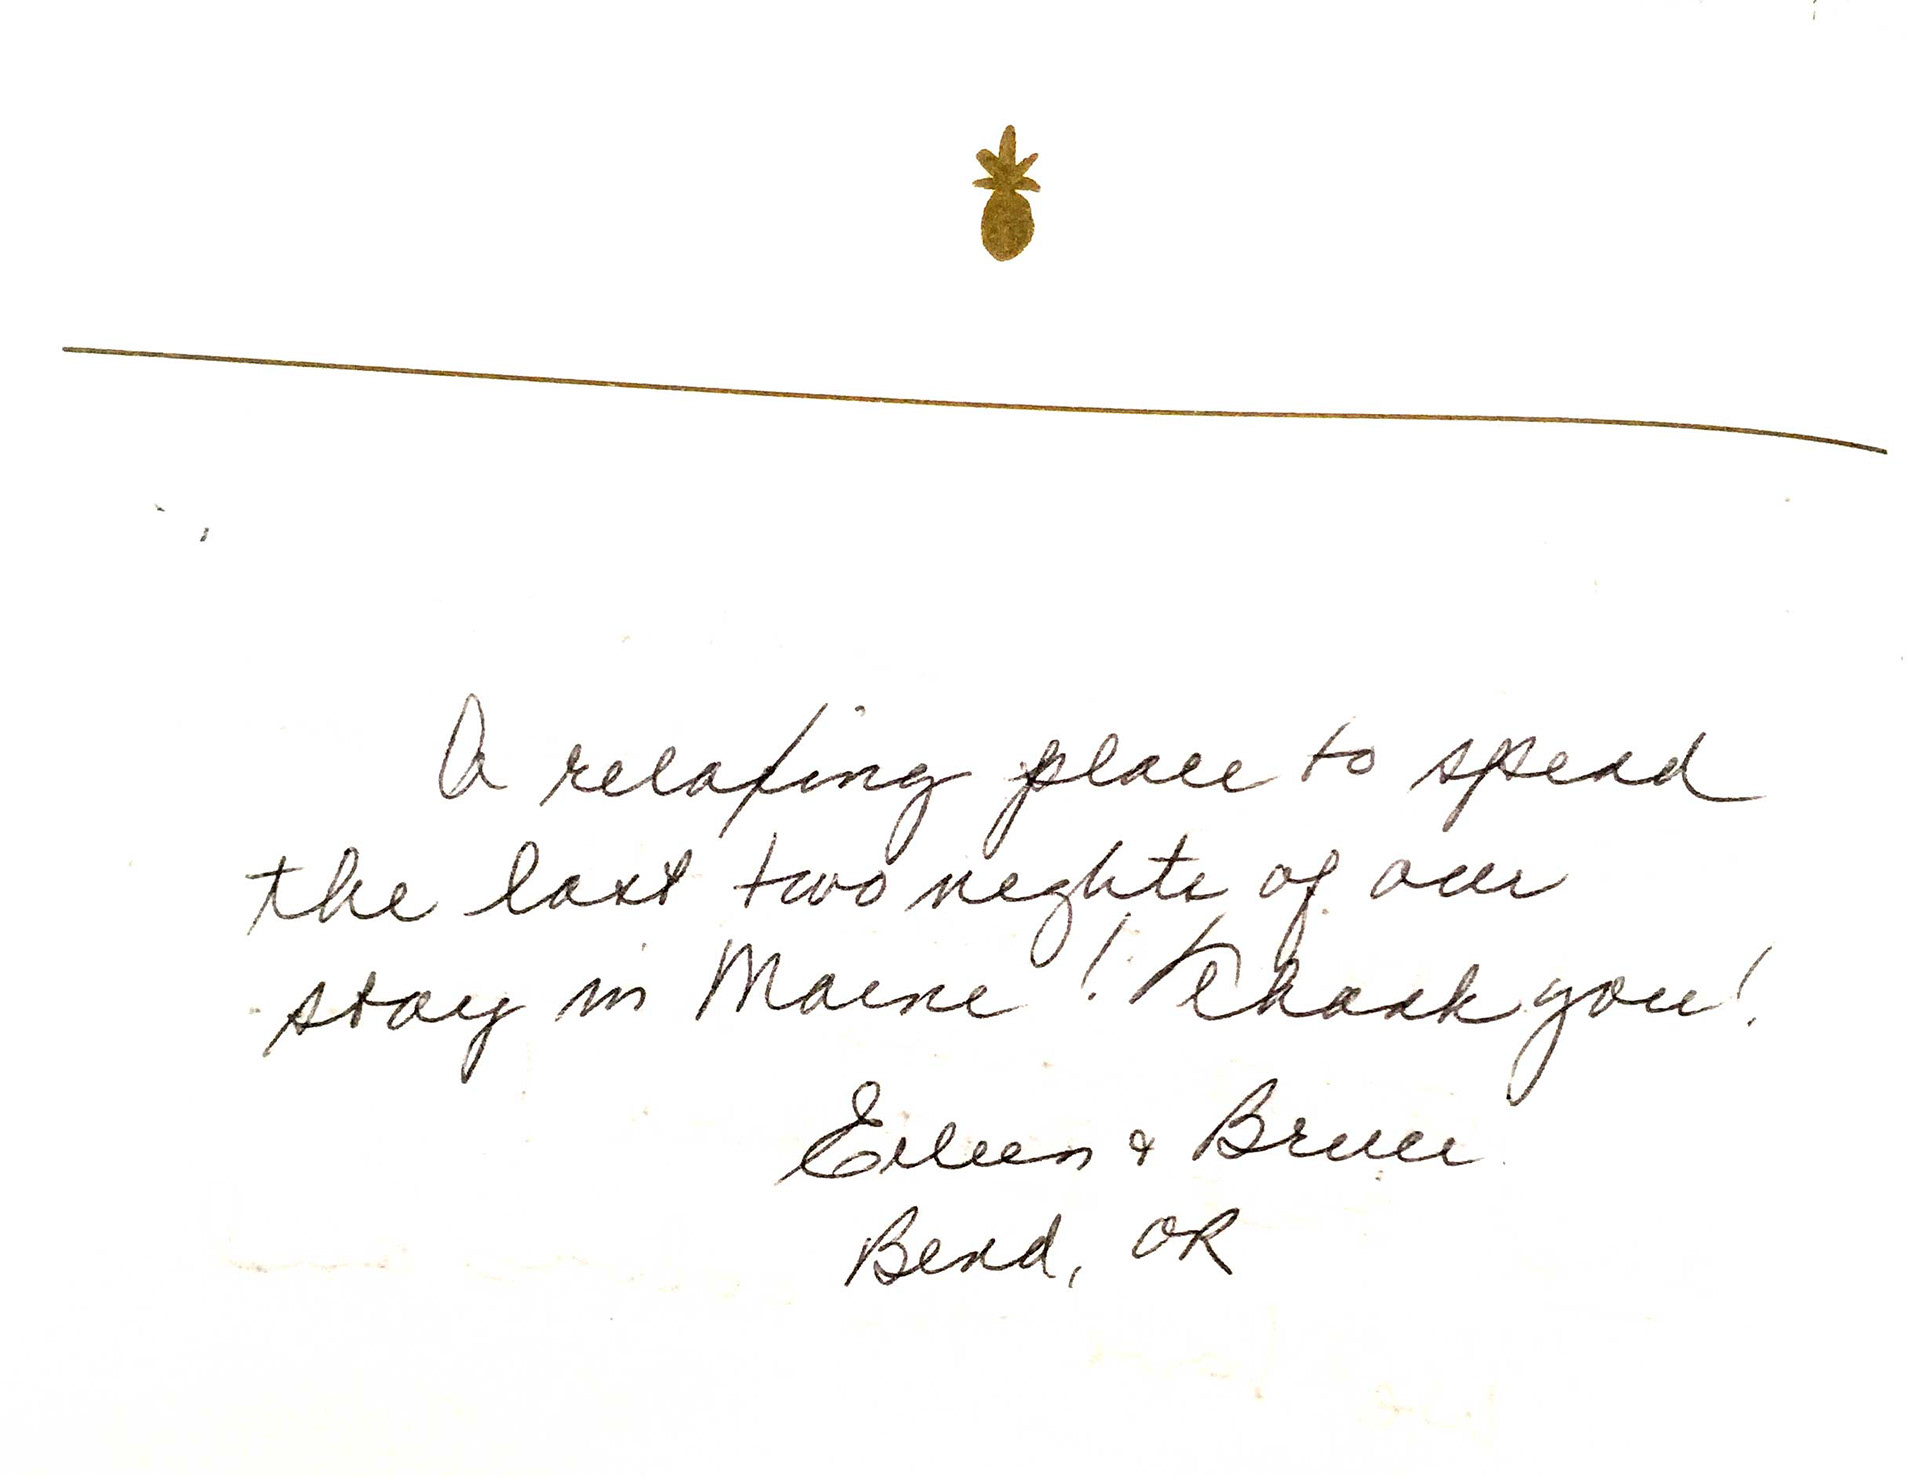 A relaxing place to spend
the last two nights of our
stay in Maine! Thank you!
Eileen & Bruce
Bend, OR